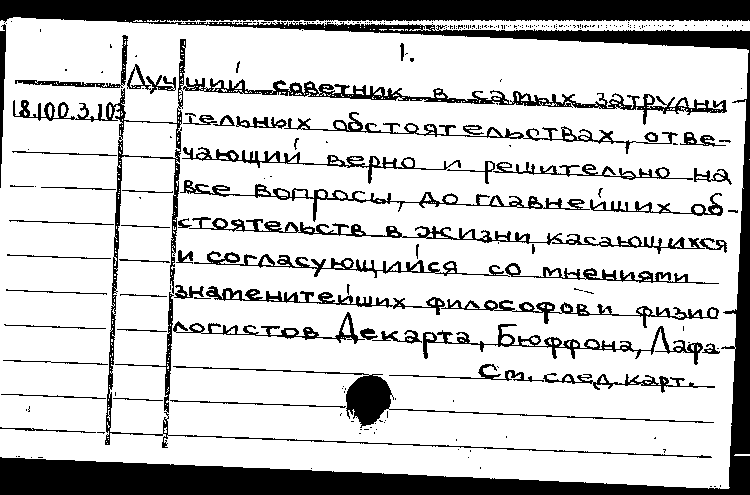 1.
Лучший советник в самых затрудни-
18.100.3.103 тельных обстоятельствах, отве-
чающий верно и решительно на
все вопросы, до главнейших об-
стоятельств в жизни, касающихся
и согласующийся со мнениями
знаменитейших философов и физио-
логистов Декарта, Бюффона, Лафа-
См. след. карт.